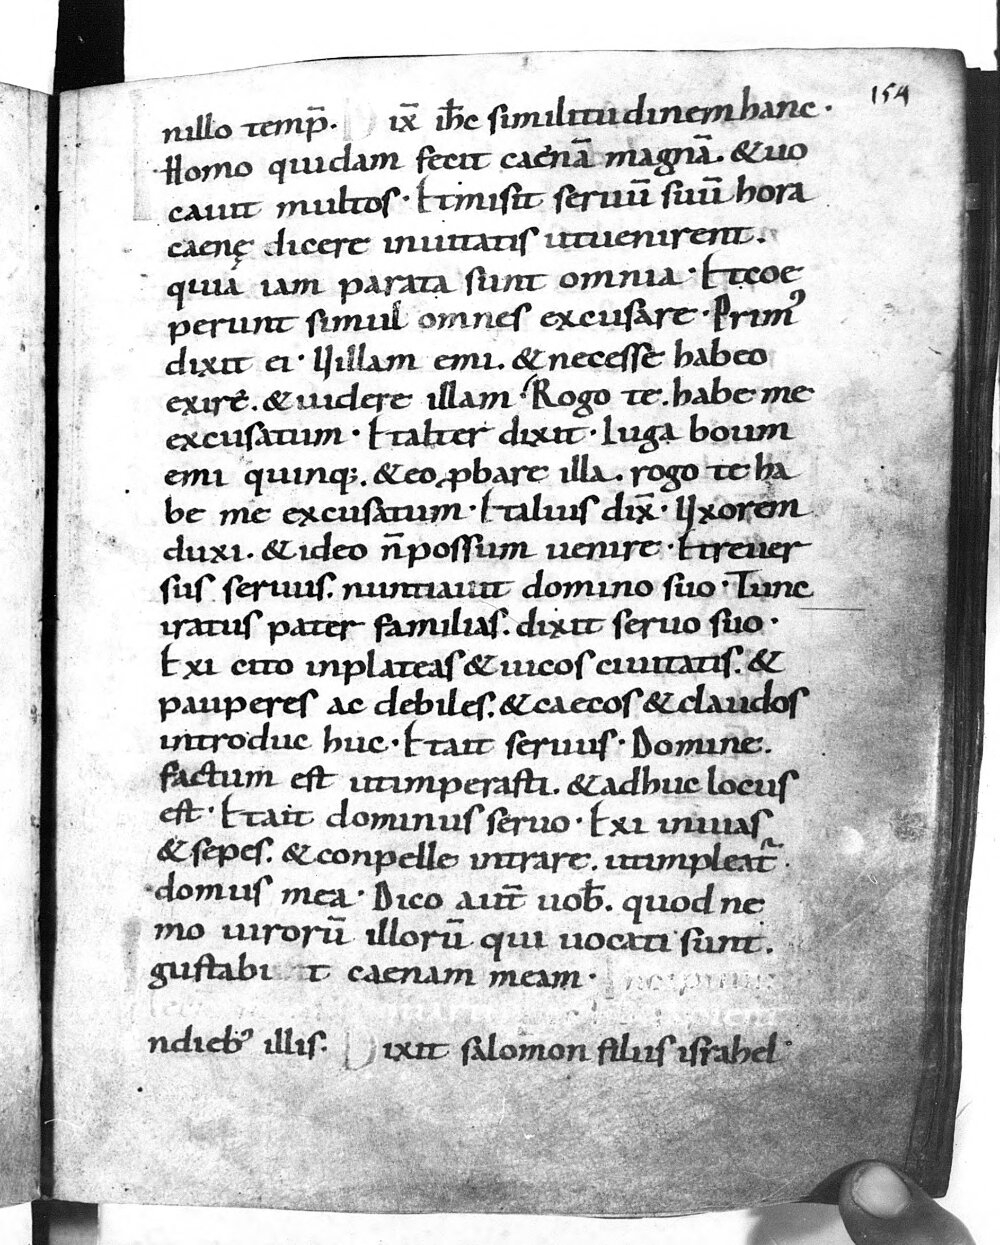 154
nillo temp̄. ix̄ ih̄c similitudinem hanc.
Homo quidam fecit caenā magnā. & uo
cauit multos. Et misit seruū suū hora
caenę dicere inuitatis ut uenirent.
quia iam parata sunt omnia. Et coe
perunt simul omnes excusare. Primꝰ
dixit ei. Uillam emi. & necesse habeo
exire. & uidere illam. Rogo te. habe me
excusatum. Et alter dixit. Iuga boum
emi quinq;. & eo ꝓbare illa. rogo te ha
be me excusatum. Et alius dix̄. Uxorem
duxi. & ideo n̄ possum uenire. Et reuer
sus seruus. nuntiauit domino suo. Tunc
iratus pater familias. dixit seruo suo.
Exi cito in plateas & uicos ciuitatis. &
pauperes ac debiles. & caecos & claudos
introduc huc. Et ait seruus. Domine.
factum est ut imperasti. & adhuc locus
est. Et ait dominus seruo. Exi in uias
& sepes. & conpelle intrare. ut impleat᷑.
domus mea. Dico aut̄ uob̄. quod ne
mo uirorū illorū qui uocati sunt.
gustabi t caenam meam.
ndiebꝰ illis. Dixit salomon filius israhel